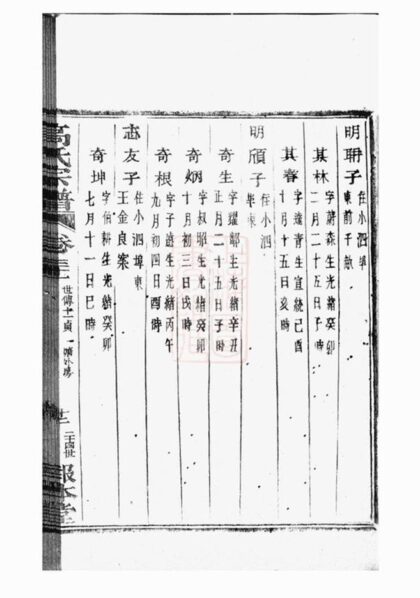 明聃子
住小泗埠
東前千畝
其林
字蔚森生光緒癸卯
二月二十五日子時
其春
字逢青生宣統己酉
十月十五日亥時
明頎子
住小泗
埠東
奇生
字耀鄒生光緒辛丑
正月二十五日子時
奇炳
字叔昭生光緒癸卯
十月初三日戌時
奇根
字子盛生光緒丙午
九月初四日酉時
志友子
住小泗埠東
王金良案
奇坤
字伯耕生光緒癸卯
七月十一日巳時
高氏宗譜
卷三
世傳十二貞一
二十四世
報本堂